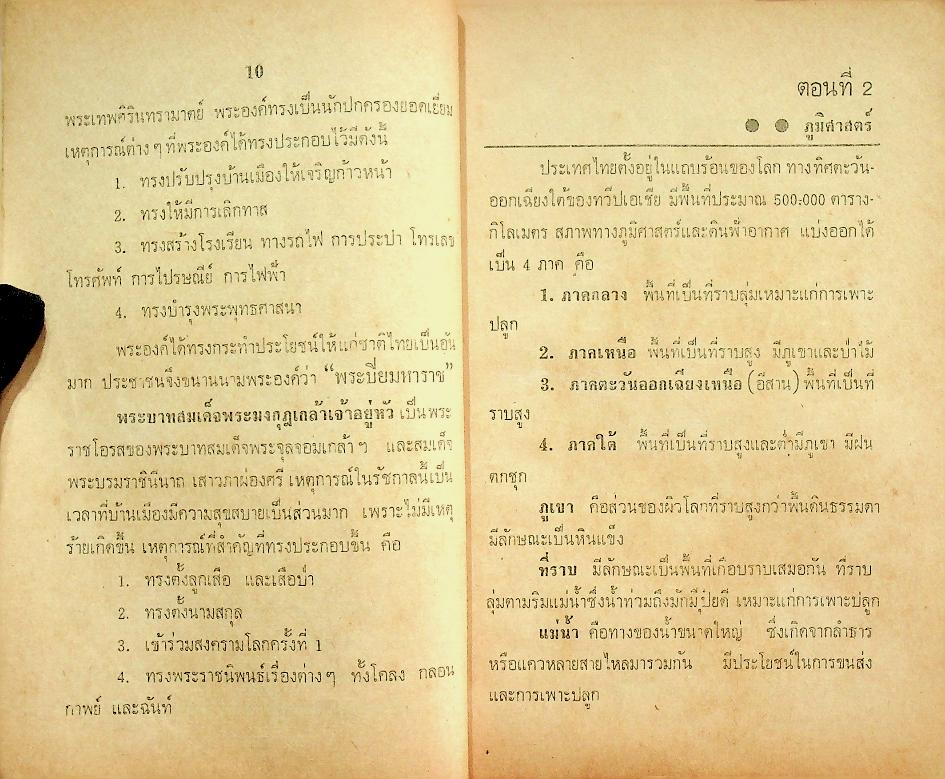 10
พระเทพศิรินทรามาตย์ พระองค์ทรงเป็นนักปกครองยอดเยี่ยม
เหตุการณ์ต่าง ๆ ที่พระองค์ได้ทรงประกอบไว้มีดังนี้
1. ทรงปรับปรุงบ้านเมืองให้เจริญก้าวหน้า
2. ทรงให้มีการเลิกทาส
3. ทรงสร้างโรงเรียน ทางรถไฟ การประปา โทรเลข
โทรศัพท์ การไปรษณีย์ การไฟฟ้า
4. ทรงบำรุงพระพุทธศาสนา
พระองค์ได้ทรงกระทำประโยชน์ให้แก่ชาติไทยเป็นอัน
มาก ประชาชนจึงขนานนามพระองค์ว่า “พระปิยมหาราช”
พระบาทสมเด็จพระมงกุฎเกล้าเจ้าอยู่หัว เป็นพระ
ราชโอรสของพระบาทสมเด็จพระจุลจอมเกล้า ฯ และสมเด็จ
พระบรมราชินีนาถ เสาวภาผ่องศรี เหตุการณ์ในรัชกาลนี้เป็น
เวลาที่บ้านเมืองมีความสุขสบายเป็นส่วนมาก เพราะไม่มีเหตุ
ร้ายเกิดขึ้น เหตุการณ์ที่สำคัญที่ทรงประกอบขึ้น คือ
1. ทรงตั้งลูกเสือ และเสือป่า
2. ทรงตั้งนามสกุล
3. เข้าร่วมสงครามโลกครั้งที่ 1
4. ทรงพระราชนิพนธ์เรื่องต่าง ๆ ทั้งโคลง กลอน
กาพย์ และฉันท์
ตอนที่ 2
ภูมิศาสตร์
ประเทศไทยตั้งอยู่ในแถบร้อนของโลก ทางทิศตะวัน-
ออกเฉียงใต้ของทวีปเอเชีย มีพื้นที่ประมาณ 500,000 ตาราง-
กิโลเมตร สภาพทางภูมิศาสตร์และดินฟ้าอากาศ แบ่งออกได้
เป็น 4 ภาค คือ
1. ภาคกลาง พื้นที่เป็นที่ราบลุ่มเหมาะแก่การเพาะ
ปลูก
2. ภาคเหนือ พื้นที่เป็นที่ราบสูง มีภูเขาและป่าไม้
3. ภาคตะวันออกเฉียงเหนือ (อีสาน) พื้นที่เป็นที่
ราบสูง
4. ภาคใต้ พื้นที่เป็นที่ราบสูงและต่ำมีภูเขา มีฝน
ตกชุก
ภูเขา คือส่วนของผิวโลกที่ราบสูงกว่าพื้นดินธรรมดา
มีลักษณะเป็นหินแข็ง
ที่ราบ มีลักษณะเป็นพื้นที่เกือบราบเสมอกัน ที่ราบ
ลุ่มตามริมแม่น้ำซึ่งน้ำท่วมถึงมักมีปุ๋ยดี เหมาะแก่การเพาะปลูก
แม่น้ำ คือทางของน้ำขนาดใหญ่ ซึ่งเกิดจากลำธาร
หรือแควหลายสายไหลมารวมกัน มีประโยชน์ในการขนส่ง
และการเพาะปลูก